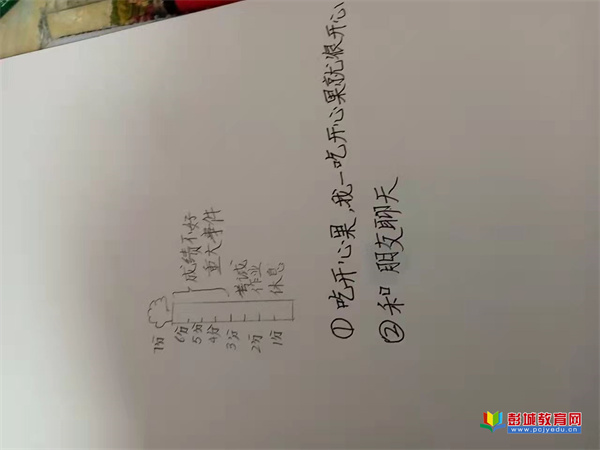 7分
6分
5分
4分
3分
2分
1分
成绩不好
重大事件
考试
作业
休息
①吃开心果,我一吃开心果就很开心
②和朋友聊天
彭城教育网
www.pojyedu.cn